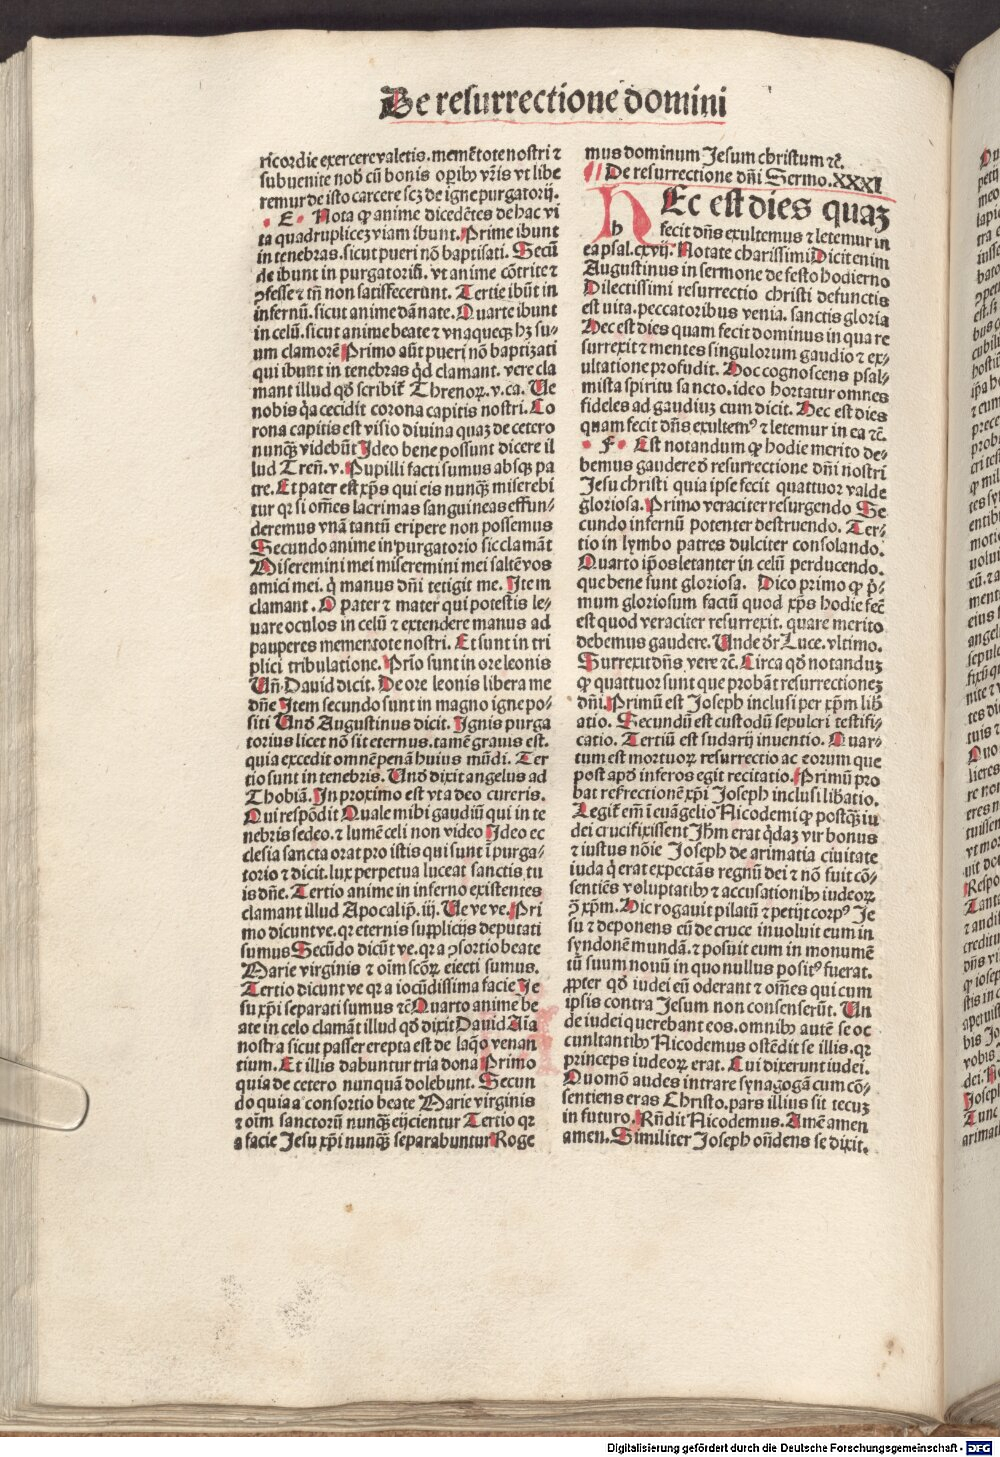 De resurrectione domini
ricordie exercere valetis. memẽtote nostri ⁊
subuenite nob̃ cũ bonis oꝑibꝰ vr̃is vt libe
remur de isto carcere scꝫ de igne purgatorij.
E. Nota ꝙ anime dicedẽtes de hac vi
ta quadruplicez viam ibunt. Prime ibunt
in tenebras. sicut pueri nõ baptisati. Secũ
de ibunt in purgatoriũ. vt anime cõtrite ⁊
ꝯfesse ⁊ tñ non satisfecerunt. Tertie ibũt in
infernũ. sicut anime dãnate. Quarte ibunt
in celũ. sicut anime beate ⁊ vnaqueqꝫ hꝫ su-
um clamorẽ Primo aũt pueri nõ baptizati
qui ibunt in tenebras q̃d clamant. vere cla
mant illud qđ scribit̃ Threnoꝝ. v. ca. Ve
nobis q̃a cecidit corona capitis nostri. Co
rona capitis est visio diuina quaz de cetero
nunqꝫ videbũt Ideo bene possunt dicere il
lud Treñ. v. Pupilli facti sumus absqꝫ pa
tre. Et pater est xp̃s qui eis nunqꝫ miserebi
tur qꝛ si om̃es lacrimas sanguineas effun-
deremus vnã tantũ eripere non possemus
Secundo anime in purgatorio sic clamãt
Miseremini mei miseremini mei saltẽ vos
amici mei. q̃ manus dñi tetigit me. Item
clamant. O pater ⁊ mater qui potestis le-
uare oculos in celũ ⁊ extendere manus ad
pauperes mementote nostri. Et sunt in tri
plici tribulatione. Prĩo sunt in ore leonis
Uñ. Dauid dicit. De ore leonis libera me
dñe Item secundo sunt in magno igne po-
siti Unđ Augustinus dicit. Ignis purga
torius licet nõ sit eternus. tamẽ grauis est.
quia excedit omnẽ penã huius mũdi. Ter
tio sunt in tenebris. Unđ dixit angelus ad
Thobiã. In proximo est vt a deo cureris.
Qui respõdit Quale mihi gaudiũ qui in te
nebris sedeo. ⁊ lumẽ celi non video Ideo ec
clesia sancta orat pro istis qui sunt ĩ purga-
torio ⁊ dicit. lux perpetua luceat sanctis tu
is dñe. Tertio anime in inferno existentes
clamant illud Apocalip̃. iij. Ve ve ve. Pri
mo dicunt ve. qꝛ eternis supplicijs deputati
sumus Secũdo dicũt ve. qꝛ a ꝯsortio beate
Marie virginis ⁊ oĩm scõꝝ eiecti sumus.
Tertio dicunt ve qꝛ a iocũdissima facie Je
su xp̃i separati sumus ⁊c̃ Quarto anime be
ate in celo clamãt illud qđ dixit Dauid Aĩa
nostra sicut passer erepta est de laq̃o venan
tium. Et illis dabuntur tria dona Primo
quia de cetero nunquã dolebunt. Secun
do quia a consortio beate Marie virginis
⁊ oĩm sanctorũ nunqꝫ eijcientur Tertio qꝛ
a facie Jesu xp̃i nunqꝫ separabuntur Roge
mus dominum Jesum christum ⁊c̃.
De resurrectione dñi Sermo. XXXI
HEc est dies quaz
h fecit dñs exultemus ⁊ letemur in
ea psal. cxvij. Notate charissimi Dicit enim
Augustinus in sermone de festo hodierno
Dilectissimi resurrectio christi defunctis
est vita. peccatoribus venia. sanctis gloria
Hec est dies quam fecit dominus in qua re
surrexit ⁊ mentes singulorum gaudio ⁊ ex-
ultatione profudit. Hoc cognoscens psal-
mista spiritu sa ncto. ideo hortatur omnes
fideles ad gaudiuz cum dicit. Hec est dies
quam fecit dñs exultemꝰ ⁊ letemur in ea ⁊c̃.
F. Est notandum ꝙ hodie merito de-
bemus gaudere đ resurrectione dñi nostri
Jesu christi quia ipse fecit quattuor valde
gloriosa. Primo veraciter resurgendo Se
cundo infernũ potenter destruendo. Ter-
tio in lymbo patres dulciter consolando.
Quarto ip̃os letanter in celũ perducendo.
que bene sunt gloriosa. Dico primo ꝙ p̃i-
mum gloriosum factũ quod xp̃s hodie fec̃
est quod veraciter resurrexit. quare merito
debemus gaudere. Unde dr̃ Luce. vltimo.
Surrexit dñs vere ⁊c̃. Circa qđ notanduz
ꝙ quattuor sunt que probãt resurrectionez
dñi. Primũ est Joseph inclusi per xp̃m lib̃
atio. Secundũ est custodũ sepulcri testifi-
catio. Tertiũ est sudarij inuentio. Quar-
tum est mortuoꝝ resurrectio ac eorum que
post apđ inferos egit recitatio. Primũ pro
bat resurrectionẽ xp̃i Joseph inclusi lib̃atio.
Legit̃ em̃ ĩ euãgelio Nicodemi ꝙ postqꝫ iu
dei crucifixissent Jhm̃ erat q̃daz vir bonus
⁊ iustus nõie Joseph de arimatia ciuitate
iuda q̃ erat expectãs regnũ dei ⁊ nõ fuit cõ-
sentiẽs voluptatibꝰ ⁊ accusationibꝰ iudeoꝝ
ꝯ̃ xp̃m. Hic rogauit pilatũ ⁊ petijt corpꝰ Je
su ⁊ deponens eũ de cruce inuoluit eum in
syndonẽ mundã. ⁊ posuit eum in monumẽ
tũ suum nouũ in quo nullus positꝰ fuerat.
ꝓpter qđ iudei eũ oderant ⁊ om̃es qui cum
ipsis contra Jesum non consenserũt. Un
de iudei querebant eos. omnibꝰ autẽ se oc
cunltantibꝰ Nicodemus ostẽdit se illis. qꝛ
princeps iudeoꝝ erat. Cui dixerunt iudei.
Quomõ audes intrare synagogã cum cõ-
sentiens eras Christo. pars illius sit tecuz
in futuro. Rñdit Nicodemus. Amẽ amen
amen. Similiter Joseph oñdens se dixit.
Digitalisierung gefördert durch die Deutsche Forschungsgemeinschaft - DFG